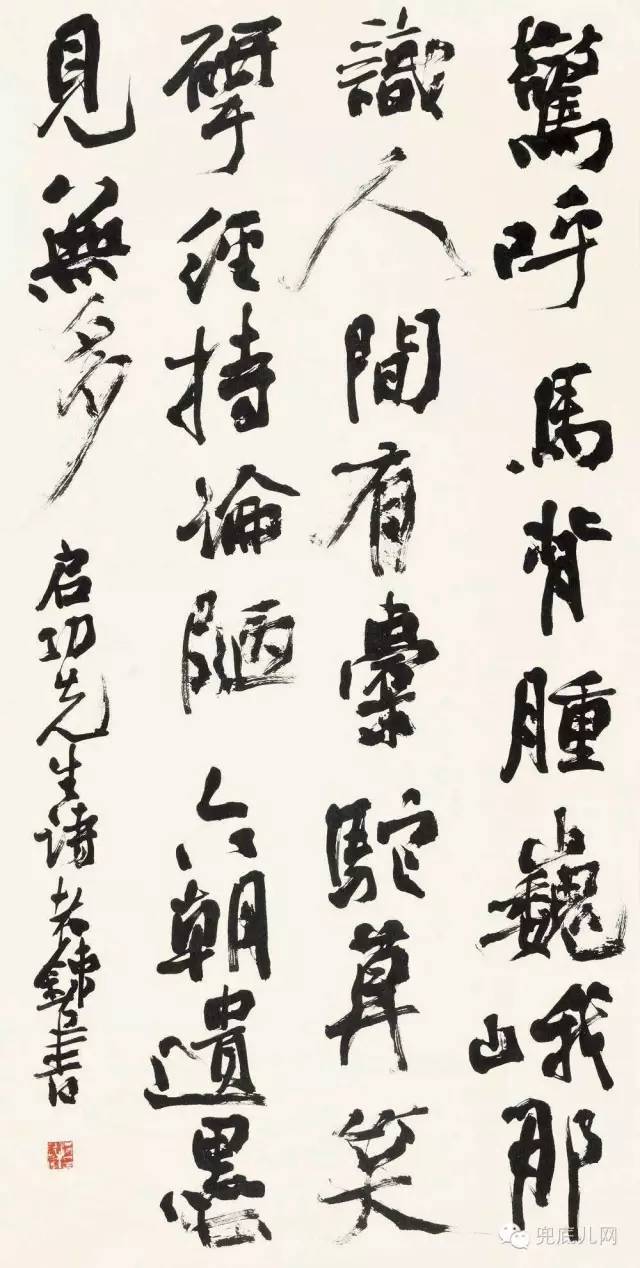 驚呼馬背腫巍峨那
識人間有橐駝莫笑
揅經持論陋六朝遺墨
見無多
启功先生詩老鐵書
兜底儿网